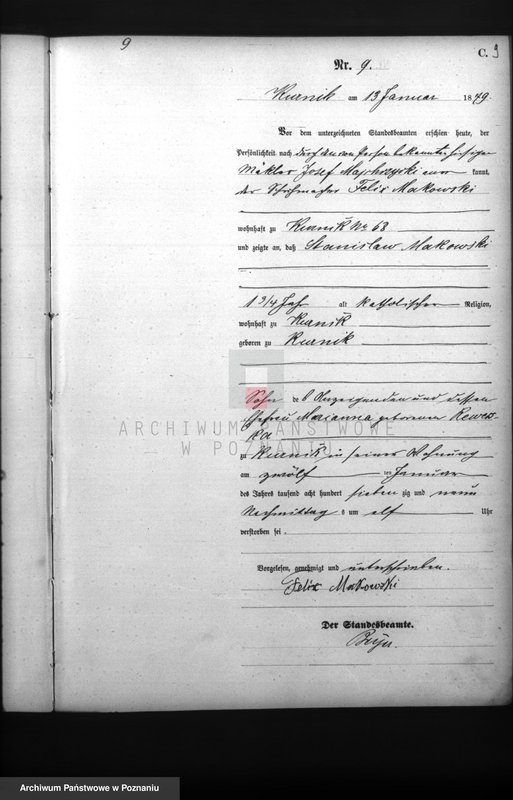 9
C. 9
Nr. 9.
Kurnik am 13 Januar 1879.
Vor dem unterzeichneten Standesbeamten erschien heute, der
Persönlichkeit nach durch den von Person bekannten hiesigen
Mäkler Josef kannt,
der Schuhmacher Felix Makowski
wohnhaft zu Kurnik No 68
und zeigte an, daß Stanislaw Makowski
1 3/4 Jahr alt katholischer Religion,
wohnhaft zu Kurnik
geboren zu Kurnik
Sohn des Anzeigenden und dessen
Ehefrau Marianna geborenen
ARCHIWUM PAŃSTWOWE
W POZNANIU
zu Kurnik in seiner Wohnung
am zwölf ten Januar
des Jahres tausend acht hundert sieben zig und neun
Nachmittag s um elf Uhr
verstorben sei.
Vorgelesen, genehmigt und unterschrieben.
Felix Makowski
Der Standesbeamte.
Archiwum Państwowe w Poznaniu